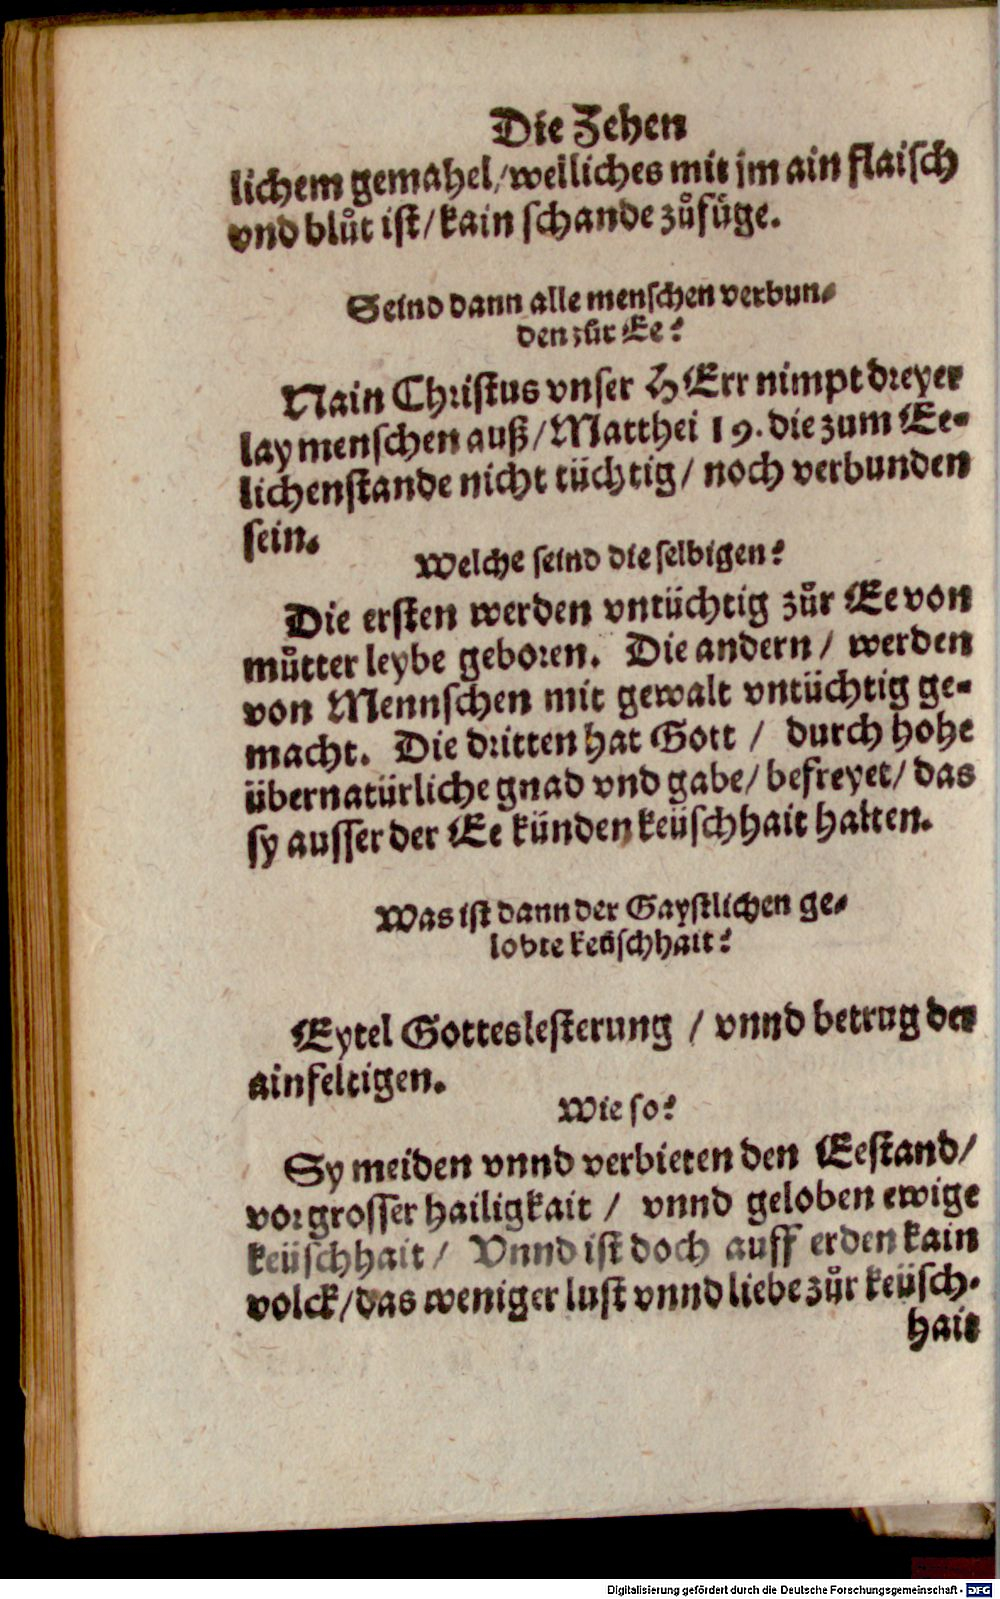 Die Zehen
lichem gemahel/ welliches mit jm ain flaisch
vnd blůt ist/ kain schande zůfüge.
Seind dann alle menschen verbun-
den zůr Ee?
Nain Christus vnser HErr nimpt dreyer
lay menschen auß/ Matthei 19. die zum Ee-
lichenstande nicht tüchtig/ noch verbunden
sein.
Welche seind die selbigen?
Die ersten werden vntüchtig zůr Ee von
můtter leybe geboren. Die andern/ werden
von Mennschen mit gewalt vntüchtig ge-
macht. Die dritten hat Gott/ durch hohe
übernatürliche gnad vnd gabe/ befreyet/ das
sy ausser der Ee künden keüschhait halten.
Was ist dann der Gaystlichen ge-
lobte keüschhait?
Eytel Gotteslesterung/ vnnd betrug der
ainfeltigen.
Wie so?
Sy meiden vnnd verbieten den Eestand/
vor grosser hailigkait/ vnnd geloben ewige
keüschhait/ Vnnd ist doch auff erden kain
volck/ das weniger lust vnnd liebe zůr keüsch-
hait
Digitalisierung gefördert durch die Deutsche Forschungsgemeinschaft - DFG